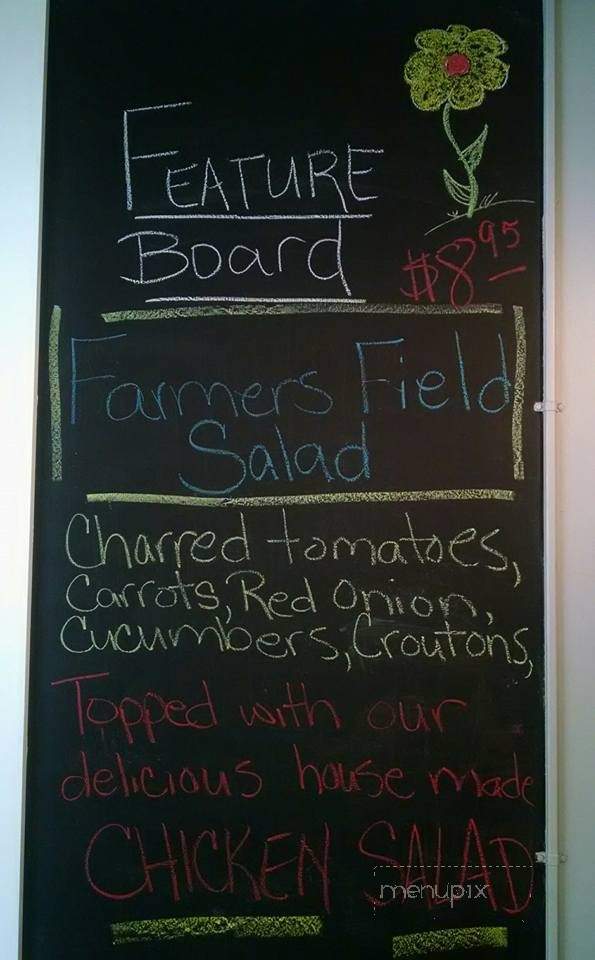 FEATURE
Board
$8.95
Farmers Field
Salad
Charred tomatoes,
Carrots, Red Onion,
Cucumbers, Croutons,
Topped with our
delicious house made
CHICKEN SALAD
menupix